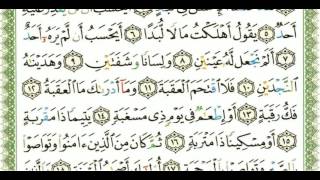 أَحَدٌ ۝٥ يَقُولُ أَهْلَكْتُ مَالًا لُّبَدًا ۝٦ أَيَحْسَبُ أَن لَّمْ يَرَهُۥٓ أَحَدٌ
۝٧ أَلَمْ نَجْعَل لَّهُۥ عَيْنَيْنِ ۝٨ وَلِسَانًا وَشَفَتَيْنِ ۝٩ وَهَدَيْنَٰهُ
ٱلنَّجْدَيْنِ ۝١٠ فَلَا ٱقْتَحَمَ ٱلْعَقَبَةَ ۝١١ وَمَآ أَدْرَىٰكَ مَا ٱلْعَقَبَةُ ۝١٢
فَكُّ رَقَبَةٍ ۝١٣ أَوْ إِطْعَٰمٌ فِى يَوْمٍ ذِى مَسْغَبَةٍ ۝١٤ يَتِيمًا ذَا مَقْرَبَةٍ
۝١٥ أَوْ مِسْكِينًا ذَا مَتْرَبَةٍ ۝١٦ ثُمَّ كَانَ مِنَ ٱلَّذِينَ ءَامَنُوا۟ وَتَوَاصَوْا۟